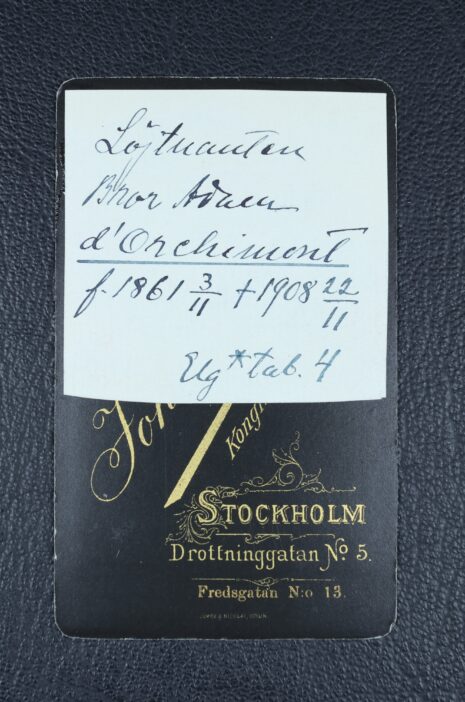 Löjtnanten
Bror Adam
d'Orchimont
f. 1861 3/11 + 1908 22/11
Elg* tab. 4
STOCKHOLM
Drottninggatan No 5.
Fredsgatan N:o 13.